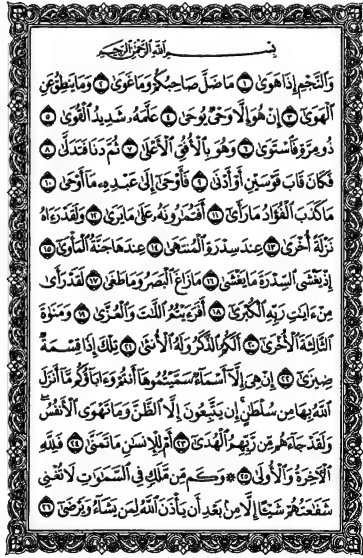 بِسْمِ اللَّهِ الرَّحْمَٰنِ الرَّحِيمِ
وَالنَّجْمِ إِذَا هَوَىٰ ١ مَا ضَلَّ صَاحِبُكُمْ وَمَا غَوَىٰ ٢ وَمَا يَنطِقُ عَنِ
الْهَوَىٰ ٣ إِنْ هُوَ إِلَّا وَحْيٌ يُوحَىٰ ٤ عَلَّمَهُ شَدِيدُ الْقُوَىٰ ٥
ذُو مِرَّةٍ فَاسْتَوَىٰ ٦ وَهُوَ بِالْأُفُقِ الْأَعْلَىٰ ٧ ثُمَّ دَنَا فَتَدَلَّىٰ ٨
فَكَانَ قَابَ قَوْسَيْنِ أَوْ أَدْنَىٰ ٩ فَأَوْحَىٰ إِلَىٰ عَبْدِهِ مَا أَوْحَىٰ ١٠
مَا كَذَبَ الْفُؤَادُ مَا رَأَىٰ ١١ أَفَتُمَارُونَهُ عَلَىٰ مَا يَرَىٰ ١٢ وَلَقَدْ رَءَاهُ
نَزْلَةً أُخْرَىٰ ١٣ عِندَ سِدْرَةِ الْمُنتَهَىٰ ١٤ عِندَهَا جَنَّةُ الْمَأْوَىٰ ١٥
إِذْ يَغْشَى السِّدْرَةَ مَا يَغْشَىٰ ١٦ مَا زَاغَ الْبَصَرُ وَمَا طَغَىٰ ١٧ لَقَدْ رَأَىٰ
مِنْ ءَايَاتِ رَبِّهِ الْكُبْرَىٰ ١٨ أَفَرَءَيْتُمُ اللَّاتَ وَالْعُزَّىٰ ١٩ وَمَنَوٰةَ
الثَّالِثَةَ الْأُخْرَىٰ ٢٠ أَلَكُمُ الذَّكَرُ وَلَهُ الْأُنثَىٰ ٢١ تِلْكَ إِذًا قِسْمَةٌ
ضِيزَىٰ ٢٢ إِنْ هِيَ إِلَّا أَسْمَاءٌ سَمَّيْتُمُوهَا أَنتُمْ وَءَابَاؤُكُم مَّا أَنزَلَ
اللَّهُ بِهَا مِن سُلْطَانٍ إِن يَتَّبِعُونَ إِلَّا الظَّنَّ وَمَا تَهْوَى الْأَنفُسُ
وَلَقَدْ جَاءَهُم مِّن رَّبِّهِمُ الْهُدَىٰ ٢٣ أَمْ لِلْإِنسَانِ مَا تَمَنَّىٰ ٢٤ فَلِلَّهِ
الْآخِرَةُ وَالْأُولَىٰ ٢٥ ۞ وَكَم مِّن مَّلَكٍ فِي السَّمَاوَاتِ لَا تُغْنِي
شَفَاعَتُهُمْ شَيْئًا إِلَّا مِن بَعْدِ أَن يَأْذَنَ اللَّهُ لِمَن يَشَاءُ وَيَرْضَىٰ ٢٦